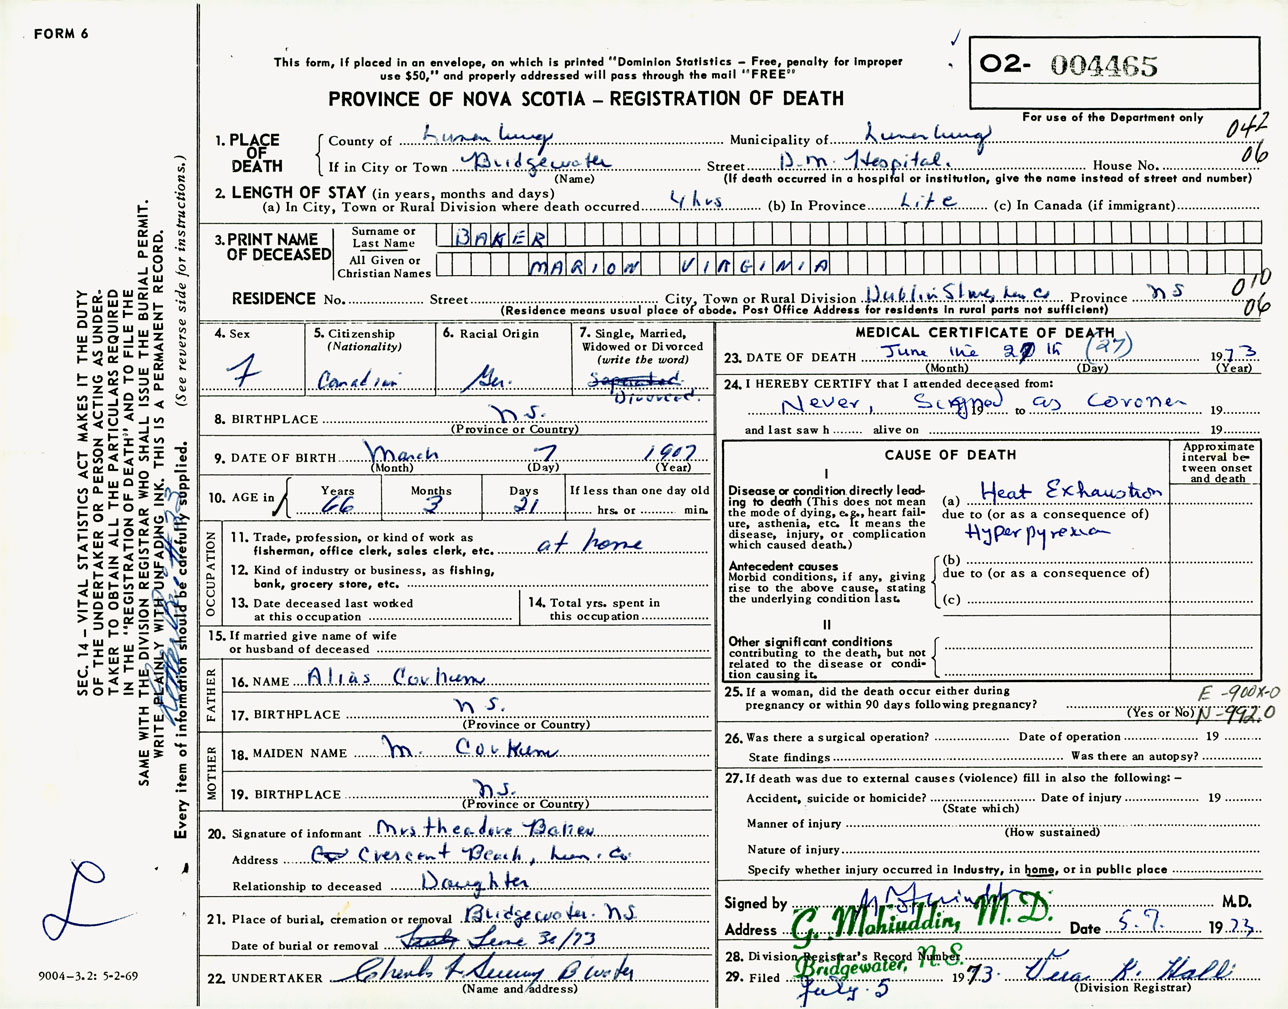 FORM 6
This form, if placed in an envelope, on which is printed "Dominion Statistics – Free, penalty for improper
use $50," and properly addressed will pass through the mail "FREE"
PROVINCE OF NOVA SCOTIA – REGISTRATION OF DEATH
O2- 004465
For use of the Department only
042
06
1. PLACE OF DEATH County of Lunenburg Municipality of Lunenburg
If in City or Town Bridgewater Street D.M. Hospital. House No.
(Name) (If death occurred in a hospital or institution, give the name instead of street and number)
2. LENGTH OF STAY (in years, months and days)
(a) In City, Town or Rural Division where death occurred 4 hrs (b) In Province Life (c) In Canada (if immigrant)
3. PRINT NAME OF DECEASED
Surname or Last Name BAKER
All Given or Christian Names MARION VIRGINIA
010
06
RESIDENCE No. Street City, Town or Rural Division Dublin Shore, Lun Co Province NS
(Residence means usual place of abode. Post Office Address for residents in rural parts not sufficient)
4. Sex F
5. Citizenship (Nationality) Canadian
6. Racial Origin Ger.
7. Single, Married, Widowed or Divorced (write the word) Separated Divorced.
8. BIRTHPLACE N.S.
(Province or Country)
9. DATE OF BIRTH March 7 1907
(Month) (Day) (Year)
10. AGE in Years 66 Months 3 Days 21 If less than one day old
hrs. or min.
OCCUPATION
11. Trade, profession, or kind of work as
fisherman, office clerk, sales clerk, etc. at home
12. Kind of industry or business, as fishing,
bank, grocery store, etc.
13. Date deceased last worked
at this occupation
14. Total yrs. spent in
this occupation
15. If married give name of wife
or husband of deceased
FATHER
16. NAME Alias Corkum
17. BIRTHPLACE N.S.
(Province or Country)
MOTHER
18. MAIDEN NAME M. Corkum
19. BIRTHPLACE N.S.
(Province or Country)
20. Signature of informant Mrs Theadore Baker
Address Crescent Beach, Lun. Co.
Relationship to deceased Daughter
21. Place of burial, cremation or removal Bridgewater. NS
Date of burial or removal June 30/73
22. UNDERTAKER B water
(Name and address)
MEDICAL CERTIFICATE OF DEATH
23. DATE OF DEATH June the 27 th (27) 1973
(Month) (Day) (Year)
24. I HEREBY CERTIFY that I attended deceased from:
Never, Signed 19 to as coroner 19
and last saw h alive on 19
CAUSE OF DEATH
Approximate interval between onset and death
I
Disease or condition directly leading to death (This does not mean the mode of dying, e.g., heart failure, asthenia, etc. It means the disease, injury, or complication which caused death.)
(a) Heat Exhaustion
due to (or as a consequence of)
Hyperpyrexia
Antecedent causes
Morbid conditions, if any, giving rise to the above cause, stating the underlying condition last.
(b)
due to (or as a consequence of)
(c)
II
Other significant conditions
contributing to the death, but not related to the disease or condition causing it.
25. If a woman, did the death occur either during
pregnancy or within 90 days following pregnancy?
(Yes or No)
E-900X-0
N-992.0
26. Was there a surgical operation? Date of operation 19
State findings Was there an autopsy?
27. If death was due to external causes (violence) fill in also the following: –
Accident, suicide or homicide? Date of injury 19
(State which)
Manner of injury
(How sustained)
Nature of injury
Specify whether injury occurred in industry, in home, or in public place
Signed by M.D.
Address G. Mohiuddin, M.D. Date 5.7. 1973.
28. Division Registrar's Record Number
Bridgewater, N.S.
29. Filed July 5 1973. Vera K. Halli
(Division Registrar)
SEC. 14 – VITAL STATISTICS ACT MAKES IT THE DUTY
OF THE UNDERTAKER OR PERSON ACTING AS UNDER-
TAKER TO OBTAIN ALL THE PARTICULARS REQUIRED
IN THE "REGISTRATION OF DEATH" AND TO FILE THE
SAME WITH THE DIVISION REGISTRAR WHO SHALL ISSUE THE BURIAL PERMIT.
WRITE PLAINLY WITH UNFADING INK. THIS IS A PERMANENT RECORD.
Every item of information should be carefully supplied. (See reverse side for instructions.)
L
9004-3.2: 5-2-69